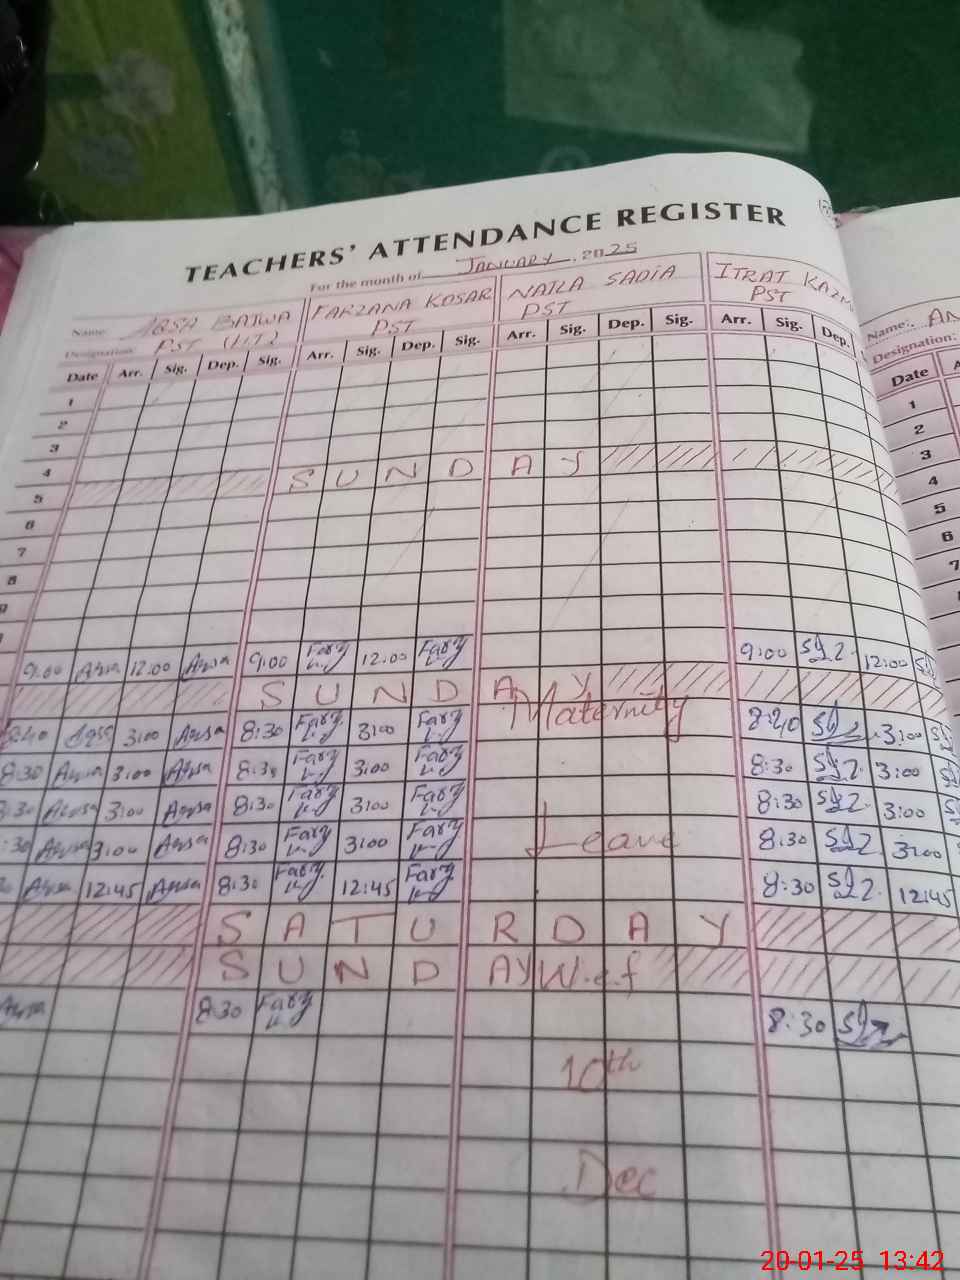 TEACHERS' ATTENDANCE REGISTER
For the month of JANUARY, 2025
Name: AQSA BAJWA FARZANA KOSAR NAILA SADIA ITRAT KAZM Name: AN
Designation: PST PST PST PST Designation:
Date Arr. Sig. Dep. Sig. Arr. Sig. Dep. Sig. Arr. Sig. Dep. Sig. Arr. Sig. Dep. Date A
1 1
2 2
3 3
4 4
5 SUNDAY 5
6 6
7 7
8
9
9:00 Aqsa 12:00 Aqsa 9:00 Farz 12:00 Farz 9:00 12:00
SUNDAY
8:40 Aqsa 3:00 Aqsa 8:30 Farz 3:00 Farz Maternity 8:20 3:00
8:30 Aqsa 3:00 Aqsa 8:30 Farz 3:00 Farz 8:30 3:00
:30 Aqsa 3:00 Aqsa 8:30 Farz 3:00 Farz 8:30 3:00
:30 Aqsa 3:00 Aqsa 8:30 Farz 3:00 Farz Leave 8:30 3:00
Aqsa 12:45 Aqsa 8:30 Farz 12:45 Farz 8:30 12:45
SATURDAY
SUNDAY W.e.f
Aqsa 8:30 Farz 8:30
10th
Dec
20-01-25 13:42